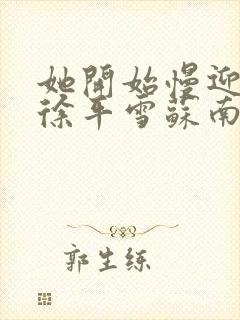 她開始慢迎
徐平雪蘇南
郭生練